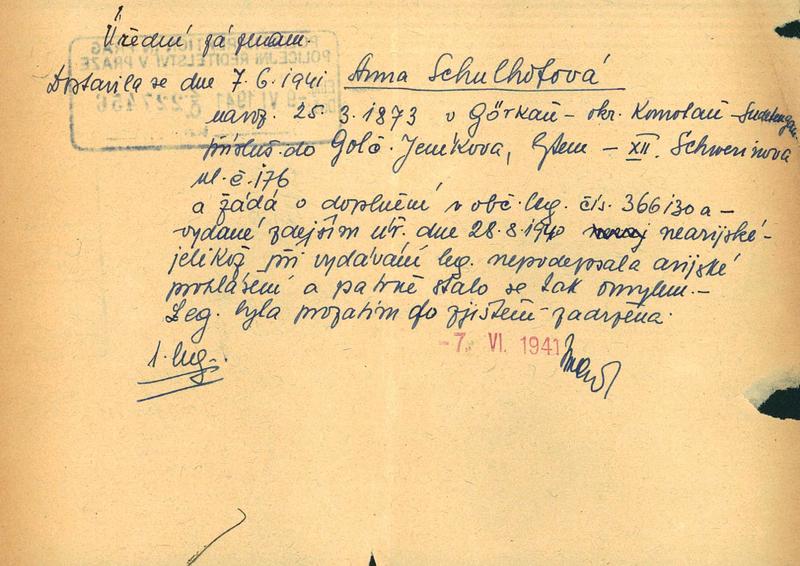 Úřední záznam.
Dostavila se dne 7.6.1941 Anna Schulhofová
naroz. 25.3.1873 v Görkau – okr. Komotau – Sudetengau
přísluš. do Golč. Jeníkova, bytem – XII. Schwerinova
ul. č. 176
a žádá o doplnění v obč. leg. čís. 366130a –
vydané zdejším úř. dne 28.8.1940 nearijské –
jelikož při vydávání leg. nepodepsala arijské
prohlášení a patrně stalo se tak omylem. –
Leg. byla prozatím do zjištění zadržena.
1. leg.
-7. VI. 1941